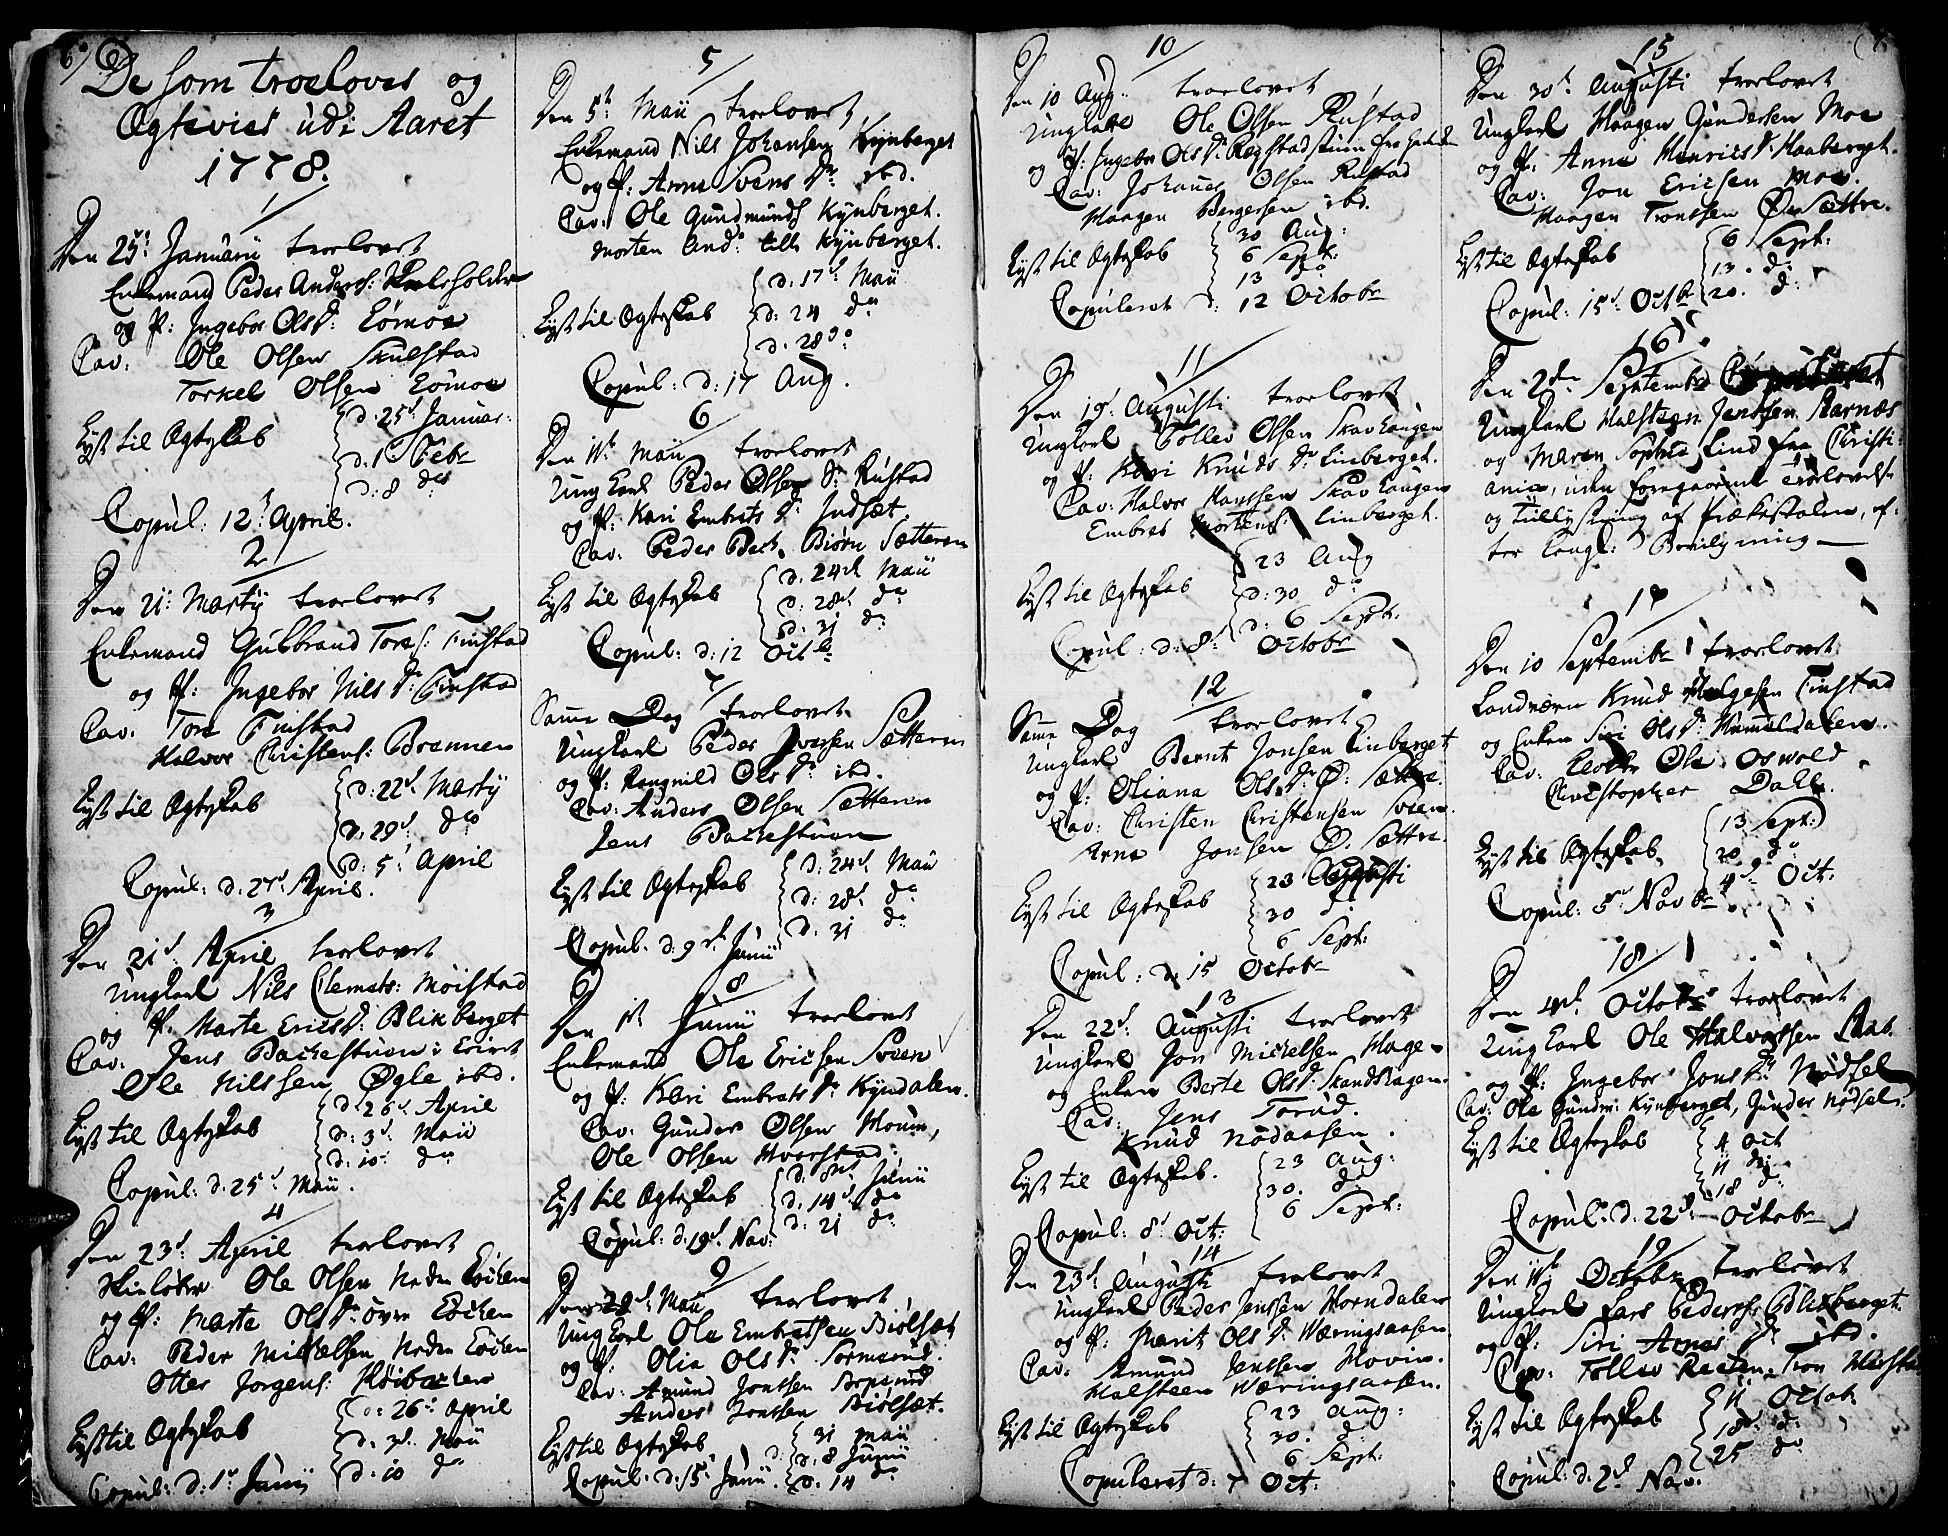 6)
De som troeloves og
Ægtevies udi Aaret
1778.
1
Den 25de Januarii troelovet
Enkemand Peder Anders:
og P: Ingebor Olsdr: Lömoe
Cav: Ole Olsen Skulstad
Torkel Olsen Lömoe
Lyst til Ægteskab
d: 25de Januar:
d: 1 Febr
d: 8 do
Copul: 12te April.
2
Den 21: Martij troelovet
Enkemand Gulbrand Tores: Finstad
og P: Ingebor Nils dr: Finstad
Cav: Tore Finstad
Halvor Christens: Brennen
Lyst til Ægteskab
d: 22de Martij
d: 29de do
d: 5te April
Copul: d: 27de April.
3
Den 21de April troelovet
Ungkarl Nils Clemets: Möistad
og P: Marte Erics dr: Blikberget
Cav: Jens Backestuen i
Ole Nilssen Ögle ibd.
Lyst til Ægteskab
d: 26de April
d: 3de Maii
d: 10 do
Copul: d: 25de Maii.
4
Den 23de April troelovet
Ole Olsen Neden
og P: Marte Ols dr: öven
Cav: Peder Mickelsen Neden
Otter Jorgens:
Lyst til Ægteskab
d: 26: April
d: 3de Maii
d: 10 do
Copul: d: 1te Junij
5
Den 5te Maii troelovet
Enkemand Nils Johansen Kynberget
og P: Anne Svens dr ibd.
Cav: Ole Gundmunds Kynberget.
Morten And: Kynberget.
Lyst til Ægteskab
d: 17de Maii
d: 24 do
d: 28 do
Copul: d: 17 Aug.
6
Den 11te Maii troelovet
Ung karl Peder Olsen Rustad
og P: Kari Embrets dr Indset.
Cav: Peder Beck, Biörn Sætteren
Lyst til Ægteskab
d: 24de Maii
d: 28de do
d: 31 do
Copul: d: 12 Octbr
7
Samme Dag troelovet
Ungkarl Peder Iversen Sætteren
og P: Rangnild Ols dr ibd.
Cav: Anders Olsen Sætteren
Jens Backestuen
Lyst til Ægteskab
d: 24de Maii
d: 28de do
d: 31 do
Copul: d: 9de Junii
8
Den 1te Junii troelovet
Enkemand Ole Ericksen Sveen
og P: Kari Embrets dr Kyndalen.
Cav: Gunder Olsen Moum,
Ole Olsen Hverstad:
Lyst til Ægteskab
d: 8de Junii
d: 14de do
d: 21 do
Copul: d: 19de Nov:
9
Den 29de Maii troelovet
Ung Karl Ole Embretsen Biölset
og P: Olia Ols dr Sormsrud.
Cav: Amund Jonssen Sormsrud
Anders Jonssen Biölset.
Lyst til Ægteskab
d: 31 Maii
d: 8 Junii
d: 14 do
Copul: d: 15de Junii
10
Den 10 Aug: troelovet
Ungkarl Ole Olsen Rustad
og P: Ingebor Ols dr
Cav: Johannes Olsen Rustad
Haagen Bergersen ibd.
Lyst til Ægteskab
30 Aug:
6 Sept:
13 do
Copuleret d: 12 Octobr
11
Den 19de Augusti troelovet
Ungkarl Tollev Olsen Skavhaugen
og P: Kari Knuds dr Linberget.
Cav: Halvor Hanssen Skavhaugen
Embret Mortens: Linberget.
Lyst til Ægteskab
23 Aug
d: 30 do
d: 6 Sept:
Copul: d: 8de Octobr
12
Samme Dag troelovet
Ungkarl Bernt Jonsen Linberget
og P: Oliana Ols dr Ö: Sættre.
Cav: Christen Christensen Sveen
Arne Jonsen Ö. Sættre.
Lyst til Ægteskab
23 Augusti
30 do
6 Sept:
Copul: d: 15 Octobr
13
Den 22de Augusti troelovet
Ungkarl Jon Mickelsen Hage
og Enken Berte Ols dr Skandshagen.
Cav: Jens Torud.
Knud Nödaasen.
Lyst til Ægteskab.
23 Aug:
30. do
6 Sept:
Copul: 8de Oct:
14
Den 23de Augusti troelovet
Ungkarl Peder Jenssen Horndalen
og P: Marit Ols dr Wæringsaasen
Cav: Amund Jenssen Hovin.
Halsteen Wæringsaasen.
Lyst til Ægteskab
23 Aug:
30. do
6 Sept:
Copuleret d: 7 Oct:
15
Den 30te Augusti troelovet
Ungkarl Haagen Gundersen Moe
og P: Anne Henrics dr Haaberget.
Cav: Jon Ericsen Moe.
Haagen Tronssen Ö Sættre.
Lyst til Ægteskab
6 Sept:
13. do
20. do
Copul: 15de Octbr
16
Den 2den Septembr
Ungkarl Halsteen Jenssen Aarnæs
og Maren Sophia Lind fra Christi:
ania, uden foregaaende Trolovelse
og Tillysning af Prækestolen, ef:
ter Kongl: Bevilgning
17
Den 10 Septembr troelovet
Landværn Knud Helgesen Finstad
og Enken Siri Ols dr Hummeldalen.
Cav: Ole Oswold
Christopher Dahl.
Lyst til Ægteskab.
13 Sept:
20 do
4de Oct:
Copul: 5te Novbr
18
Den 4de Octobr troelovet
Ung karl Ole Halvorssen Aas.
og P: Ingebor Jons dr Nödsel
Cav: Ole Gundm: Kynberget, Gunder Nödsel:
Lyst til Ægteskab
4 Oct
11 do
18 do
Copul: d: 22de Octobr
19
Den 11te Octobr troelovet
Ungkarl Lars Pederss: Blikberget
og P: Siri Arnes dr ibd.
Cav: Tollev Reeten, Tron
Lyst til Ægteskab
11 Octob:
18de do
25 do
Copul: d: 2de Nov: